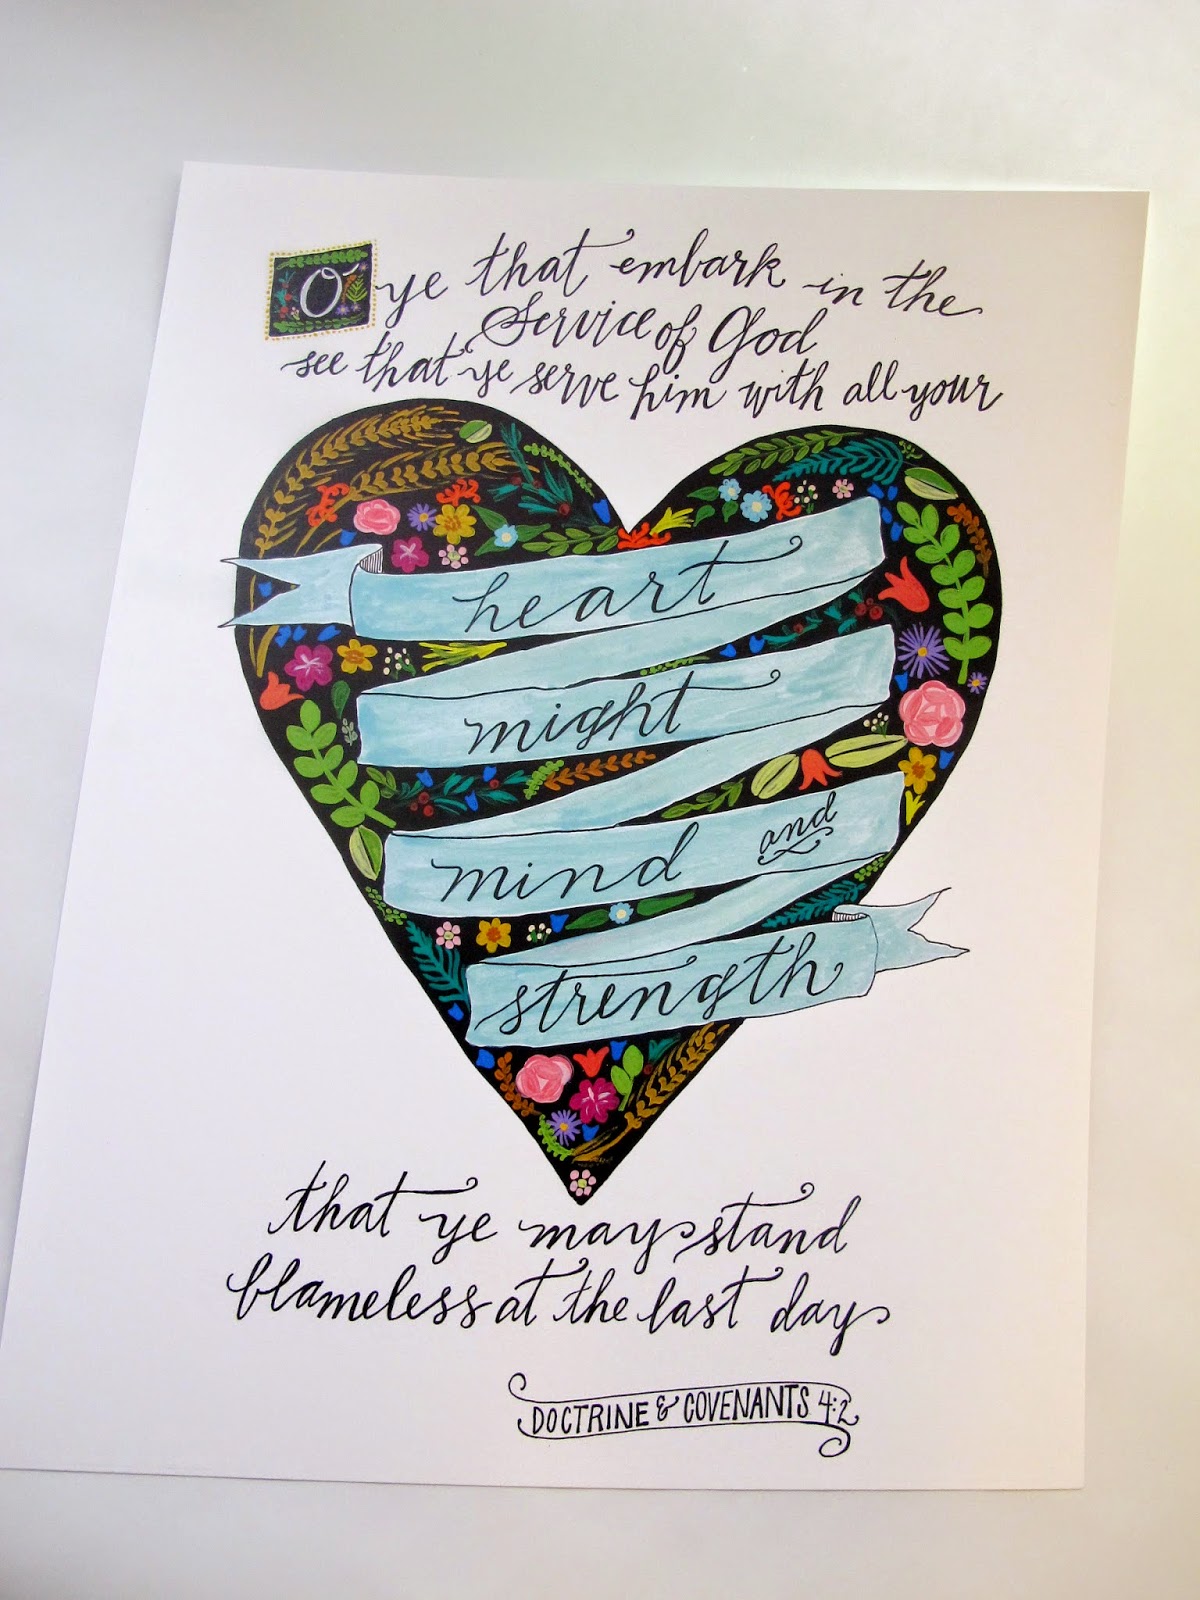 O ye that embark in the
Service of God
see that ye serve him with all your
heart
might
mind and
strength
that ye may stand
blameless at the last day
DOCTRINE & COVENANTS 4:2